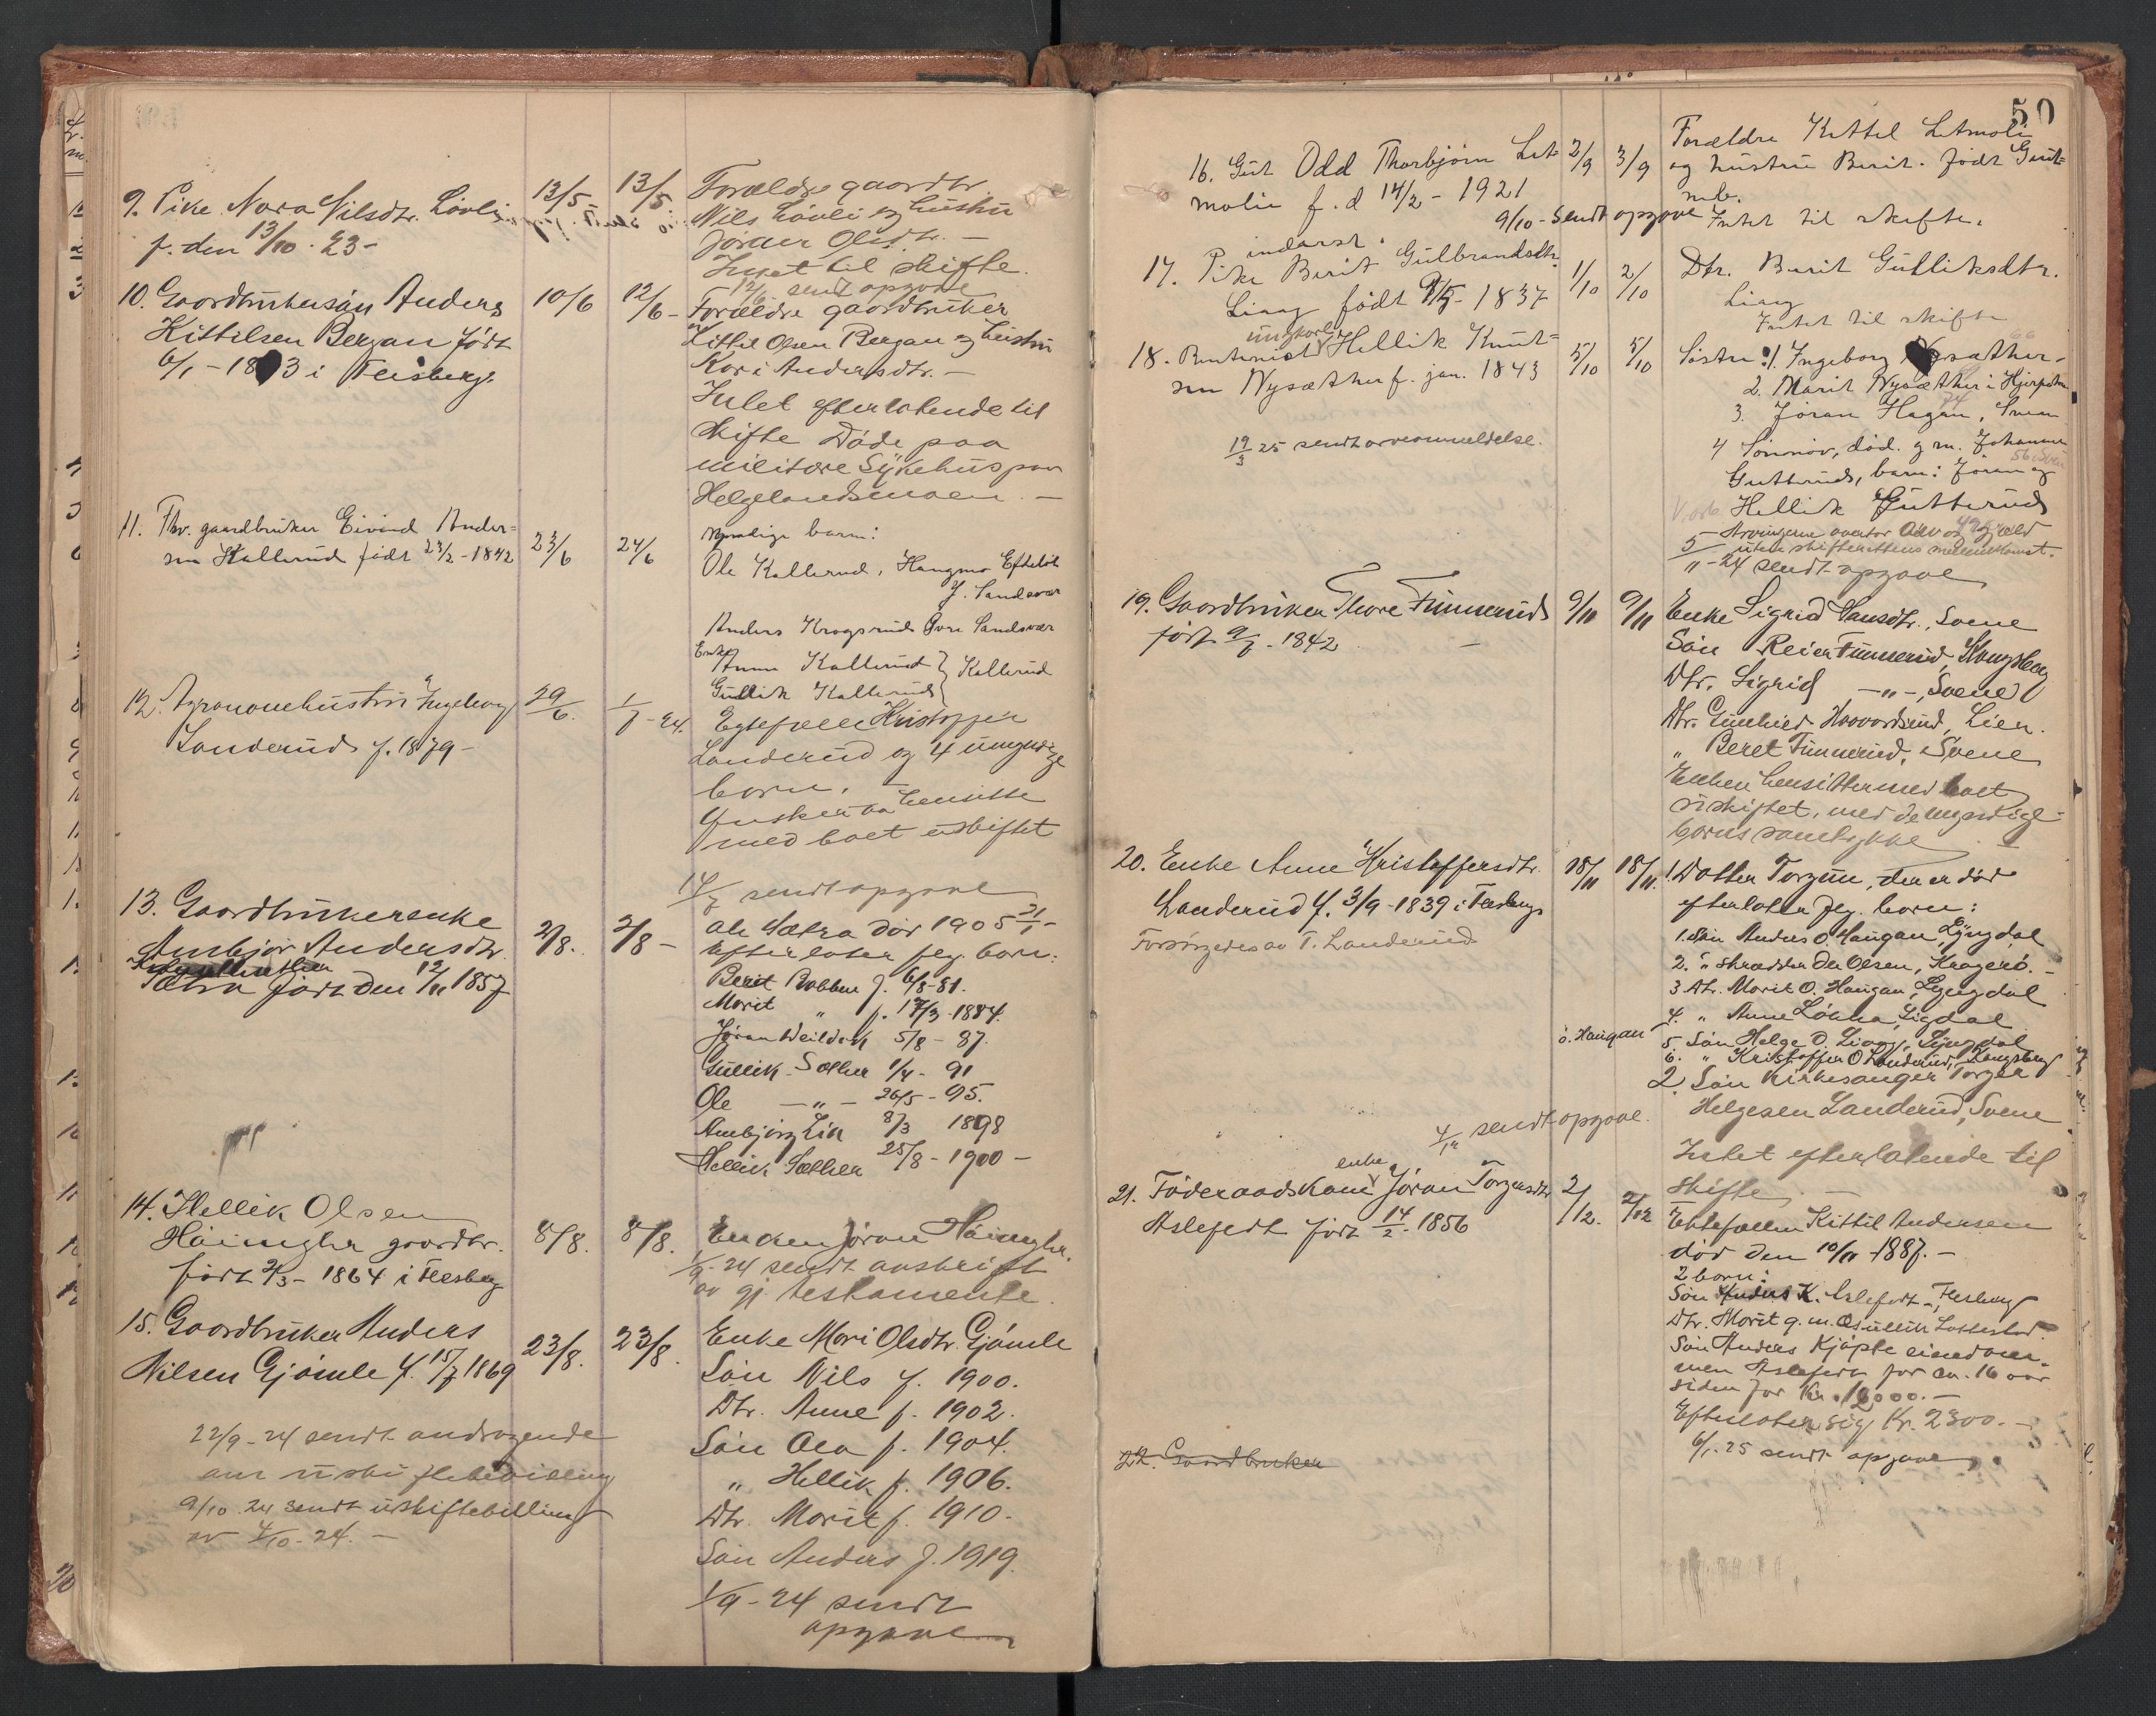 9. Pike Nora Nilsdtr. Løvli
f. den 13/10. 23-
13/5
13/5
Forældre gaardbr.
Nils Løvli og hustru
Jøran Olsdtr. —
Intet til skifte.
12/6 sendt opgave
10. Gaardbrukersøn Anders
Kittilsen Bergan født
6/1 - 1803 i Flesberg.
10/6
12/6 -
Forældre gaardbruker
Kittil Olsen Bergan og hustru
Kari Andersdtr. —
Intet efterlatende til
skifte Døde paa
militære Sykehus paa
Helgelandsmoen. —
11. Fhv. gaardbruker Eivind Anders=
sen Kallerud født 23/2 - 1842
23/6
24/6
Myndige barn:
Ole Kallerud, Hangmo Efteløt
Y. Sandsvær
Anders Krogsrud Øvre Sandsvær
Enke Anne Kallerud } Kallerud
Gullik Kallerud
12. Agronomhustru Ingeborg
Landerud f. 1879 -
29/6.
1/7 - 24.
Egtefælle Kristoffer
Landerud og 4 umyndige
born. —
Ønsker aa hensitte
med boet uskiftet
14/7 sendt opgave
13. Gaardbrukerenke
Ambjør Andersdtr.
Sætra født den 12/11 1857
2/8.
2/8 -
Ole Sætra død 1905 21/1 -
Efterlater flg. born:
Berit Robben f. 6/8 - 81.
Marit " f. 17/3 - 1884.
Jøran Weildek 5/8 - 87.
Gullik Sæther 1/4 - 91
Ole —"— 26/5 - 95.
Ambjørg Lia 8/3 1898
Hellik Sæther 25/8 - 1900 -
14. Hellik Olsen
Høimyhr gaardbr.
født 2/3 - 1864 i Flesberg
8/8.
8/8.
Enken Jøran Høimyhr.
1/9 - 24 sendt avskrift
av gj. testamente.
15. Gaardbruker Anders
Nilsen Gjømle f. 15/7 1869
23/8.
23/8.
Enke Mari Olsdtr. Gjømle
Søn Nils f. 1900.
Dtr. Anne f. 1902.
Søn Ola f. 1904.
" Hellik f. 1906.
Dtr. Marit f. 1910.
Søn Anders f. 1919.
1/9 - 24 sendt
opgave
22/9 - 24 sendt andragende
om uskiftebevilling
9/10 24 sendt uskiftebevilling
av 4/10 - 24. —
50
16. Gut Odd Thorbjørn Let=
molie f. d 14/2 - 1921
2/9
3/9
Forældre Kittil Letmolie
og hustru Berit. født Gunt=
mb.
Intet til skifte.
9/10 - sendt opgave
17. Pike Berit Gulbrandsdtr.
Liaag født 9/5 - 1837
1/10
2/10
Dtr. Berit Gulliksdtr.
Liaag
Intet til skifte
18. Rentenist ungkarl Hellik Knut=
sen Nysæther f. jan. 1843
5/10
5/10
19/3 25 sendt arveanmeldelse.
Søstre: 1. Ingeborg Nysæther-
2. Marit Nysæther i Hjerpedalen
3. Jøran Hagan, Svene
4 Sønnøv, død. g. m. Johannes
Gutterud, barn: Jøran og
Hellik Gutterud
Arvingene overtar arv og gjæld
uten skifterettens mellemkomst.
5/11 - 24 sendt opgave
19. Gaardbruker Thore Tunnerud
født 9/7 - 1842 —
9/11
9/11
Enke Sigrid Hansdtr., Svene
Søn Reier Tunnerud, Kongsberg
Dtr. Sigrid —"—, Svene
Dtr. Gunhild Haavardsrud, Lien.
" Beret Tunnerud, Svene
Enken hensitter med boet
uskiftet, med de myndige
borns samtykke
20. Enke Anne Kristoffersdtr.
Landerud f. 3/9 - 1839 i Flesberg
Forsørgedes av T. Landerud
18/11
18/11.
1. Datter Torgun, der er død
efterlater flg. born:
1. Søn Anders O. Haugan, Lyngdal
2. " skrædder Ole Olsen, Kragerø. -
3 Dtr. Marit O. Haugan, Lyngdal
4. " Anne Løkka, Sigdal
ø. Haugan
5 Søn Helge O. Liaag, Lyngdal
6. " Kristoffer O Landerud, Kongsberg
2 Søn kirkesanger Torger
Helgesen Landerud, Svene
Intet efterlatende til
skifte —
4/12 sendt opgave.
21. Føderaadskone enke Jøran Torgersdtr
Aslefedt født 14/2 - 1856
2/12.
2/12
Ektefællen Kittil Andersen
død den 10/11 - 1887. -
2 born:
Søn Anders K. Aslefedt -, Flesberg
Dtr. Marit g. m. Gullik Lofterød.
Søn Anders kjøpte eiendom=
men Aslefedt for ca. 16 aar
siden for Kr. 12000. —
Efterlater sig Kr. 2300. —
6/1. 25 sendt opgave.
22. Gaardbruker